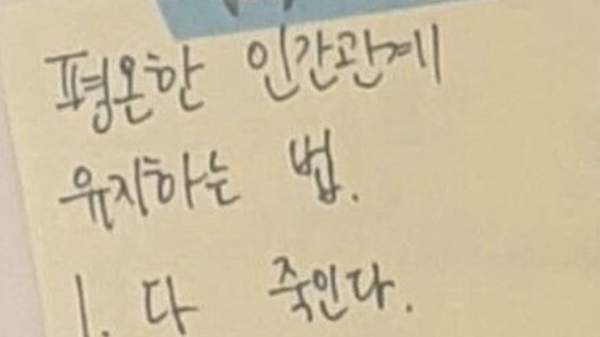 평온한 인간관계
유지하는 법.
1. 다 죽인다.